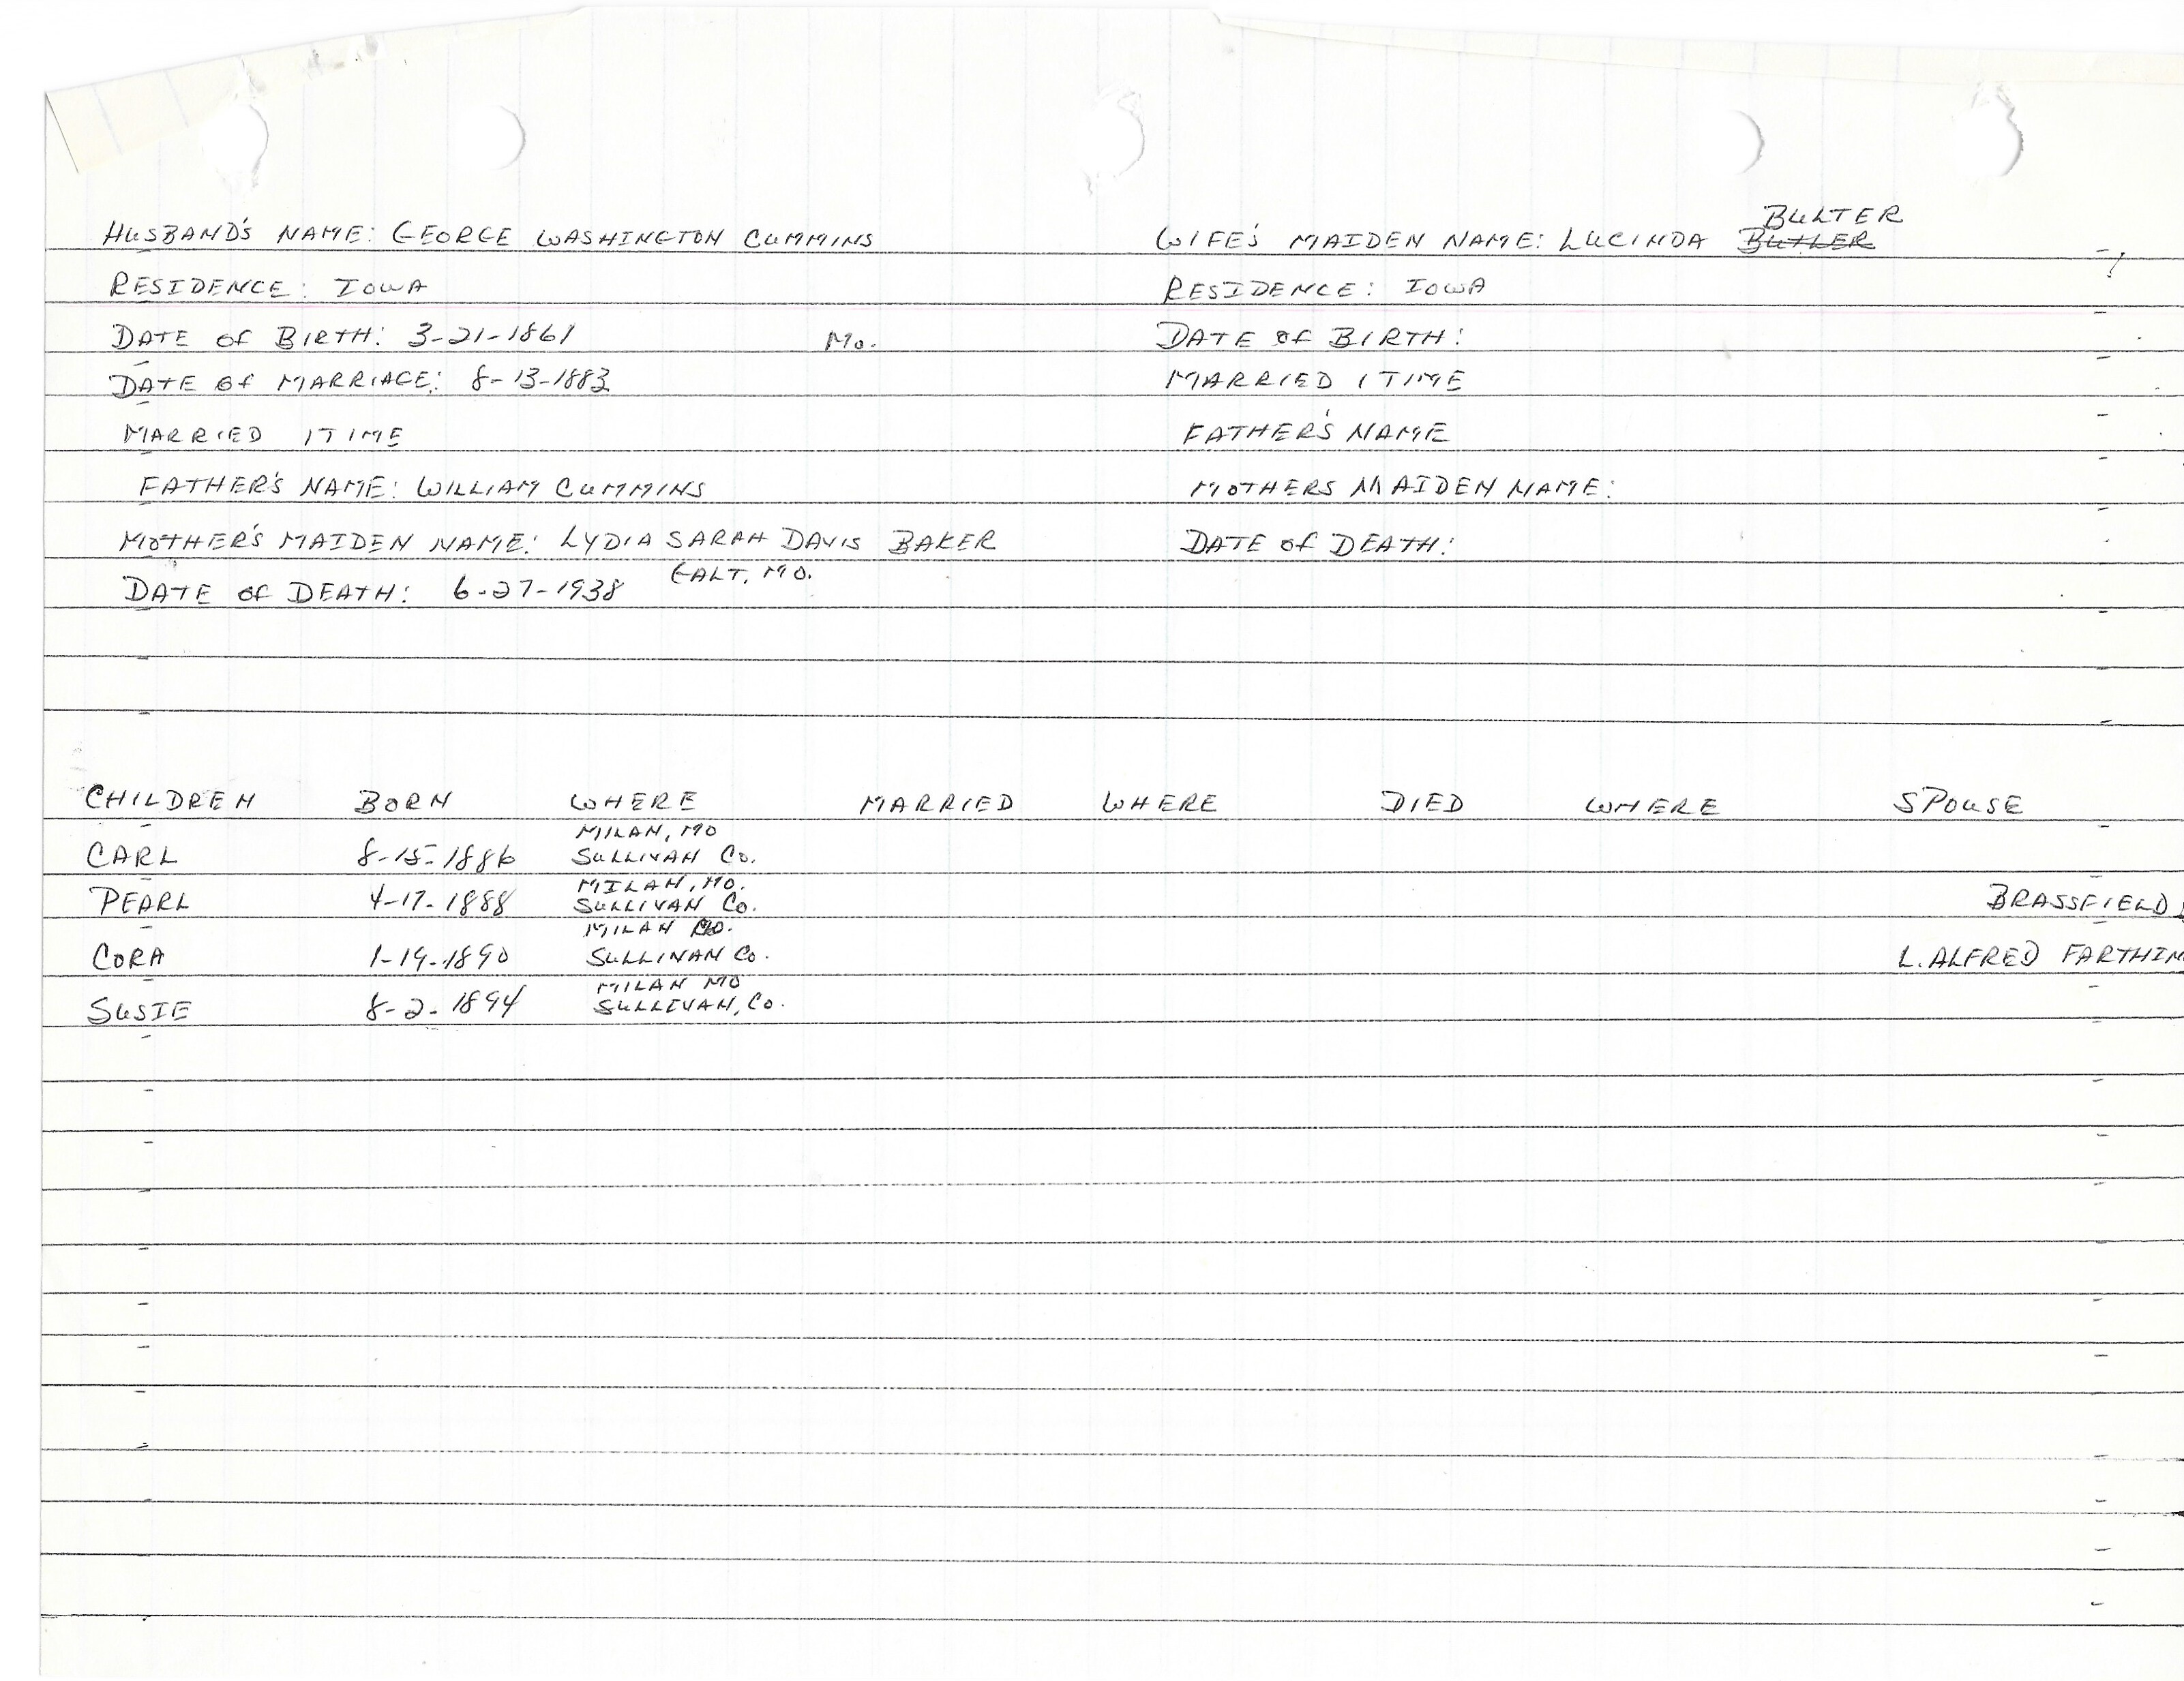 HUSBAND'S NAME: GEORGE WASHINGTON CUMMINS
RESIDENCE: IOWA
DATE OF BIRTH: 3-21-1861 MO.
DATE OF MARRIAGE: 8-13-1883
MARRIED 1 TIME
FATHER'S NAME: WILLIAM CUMMINS
MOTHER'S MAIDEN NAME: LYDIA SARAH DAVIS BAKER
GALT, MO.
DATE OF DEATH: 6-27-1938
BULTER
WIFE'S MAIDEN NAME: LUCINDA BUTLER
RESIDENCE: IOWA
DATE OF BIRTH:
MARRIED 1 TIME
FATHER'S NAME
MOTHERS MAIDEN NAME:
DATE OF DEATH:
CHILDREN BORN WHERE MARRIED WHERE DIED WHERE SPOUSE
MILAN, MO
CARL 8-15-1886 SULLIVAN CO.
MILAN, MO.
PEARL 4-17-1888 SULLIVAN CO. BRASSFIELD
MILAN MO.
CORA 1-19-1890 SULLIVAN CO. L. ALFRED FARTHIN
MILAN MO
SUSIE 8-2-1894 SULLIVAN, CO.